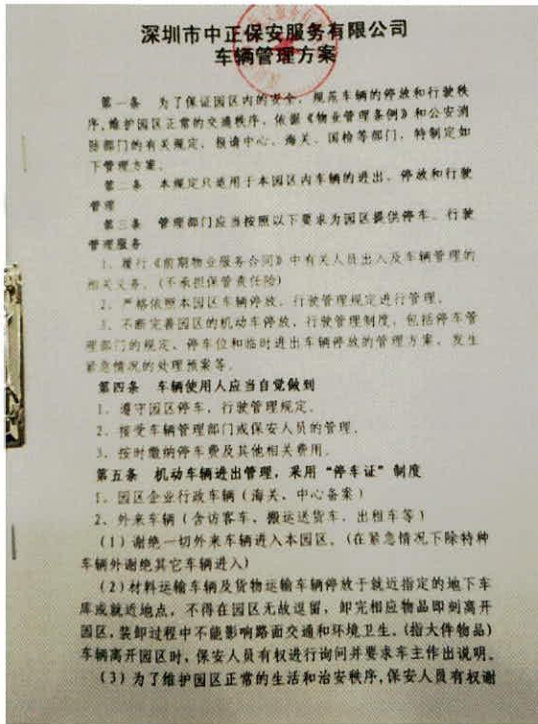 深圳市中正保安服务有限公司
车辆管理方案
第一条 为了保证园区内的安全、规范车辆的停放和行驶秩
序,维护园区正常的交通秩序、依据《物业管理条例》和公安消
防部门的有关规定、报请中心、海关、国检等部门，特制定如
下管理方案。
第二条 本规定只适用于本园区内车辆的进出、停放和行驶
管理
第三条 管理部门应当按照以下要求为园区提供停车、行驶
管理服务
1、履行《前期物业服务合同》中有关人员出入及车辆管理的
相关义务。(不承担保管责任险)
2、严格依照本园区车辆停放、行驶管理规定进行管理。
3、不断完善园区的机动车停放、行驶管理制度，包括停车管
理部门的规定、停车位和临时进出车辆停放的管理方案、发生
紧急情况的处理预案等。
第四条 车辆使用人应当自觉做到
1、遵守园区停车，行驶管理规定。
2、接受车辆管理部门或保安人员的管理。
3、按时缴纳停车费及其他相关费用。
第五条 机动车辆进出管理，采用“停车证”制度
1、园区企业行政车辆（海关、中心备案）
2、外来车辆（含访客车、搬运送货车、出租车等）
（1）谢绝一切外来车辆进入本园区。（在紧急情况下除特种
车辆外谢绝其它车辆进入）
（2）材料运输车辆及货物运输车辆停放于就近指定的地下车
库或就近地点，不得在园区无故逗留，卸完相应物品即刻离开
园区，装卸过程中不能影响路面交通和环境卫生。（指大件物品）
车辆离开园区时，保安人员有权进行询问并要求车主作出说明。
（3）为了维护园区正常的生活和治安秩序，保安人员有权谢